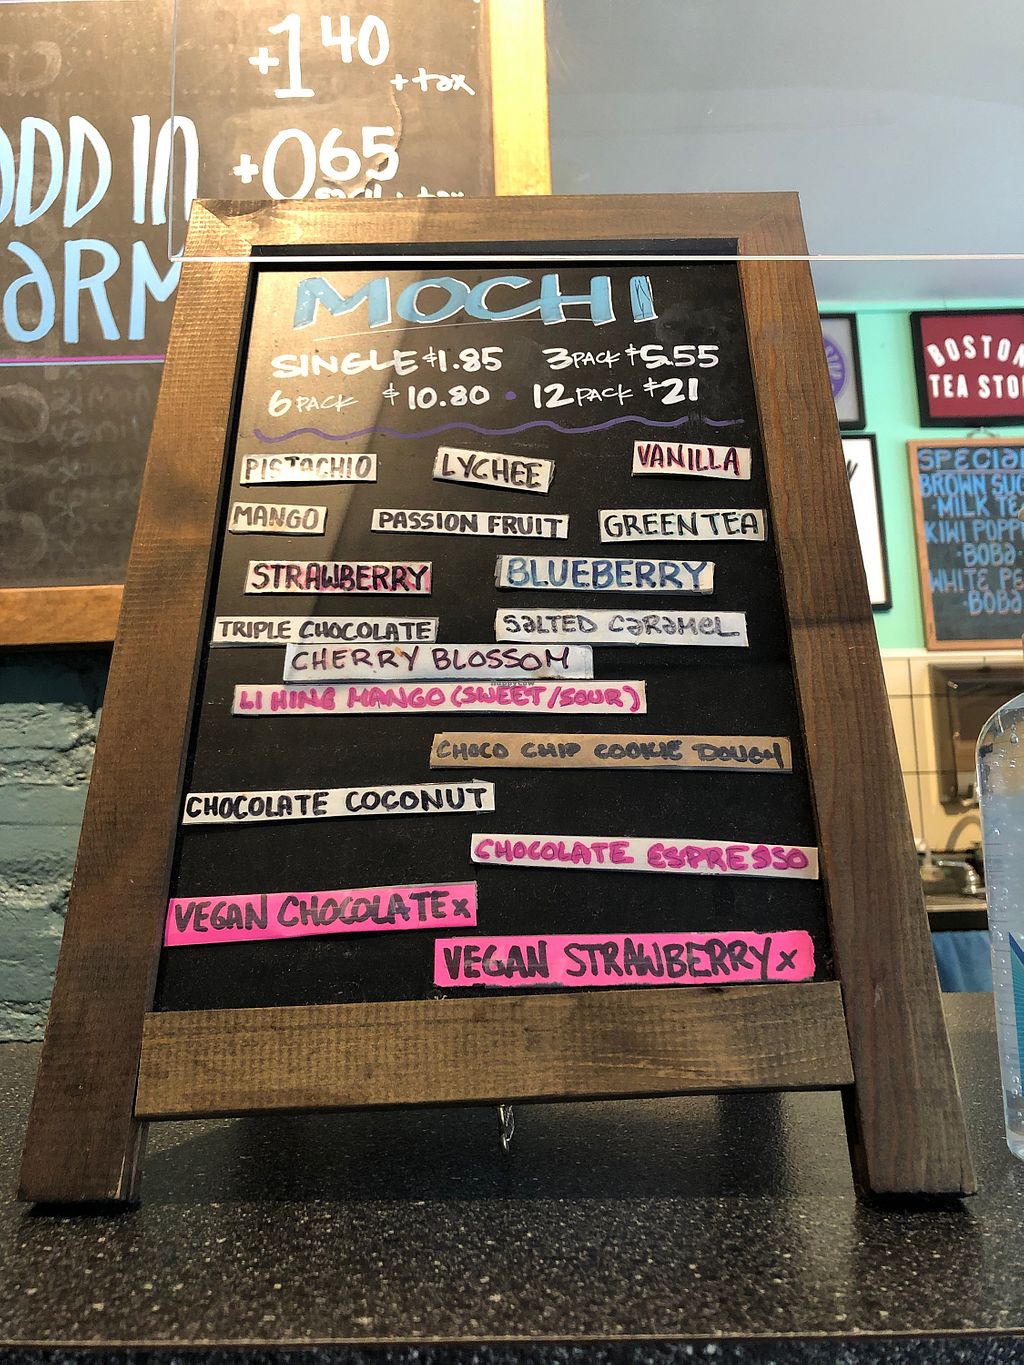 +1.40 + tax
+0.65
MOCHI
SINGLE $1.85 3 PACK $5.55
6 PACK $10.80 • 12 PACK $21
PISTACHIO LYCHEE VANILLA
MANGO PASSION FRUIT GREEN TEA
STRAWBERRY BLUEBERRY
TRIPLE CHOCOLATE SALTED CARAMEL
CHERRY BLOSSOM
LI HING MANGO (SWEET/SOUR)
CHOCO CHIP COOKIE DOUGH
CHOCOLATE COCONUT
CHOCOLATE ESPRESSO
VEGAN CHOCOLATE x
VEGAN STRAWBERRY x
BOSTON
TEA STO
SPECIAL
BROWN SUG
MILK TE
KIWI POPP
BOBA
WHITE PE
BOBA